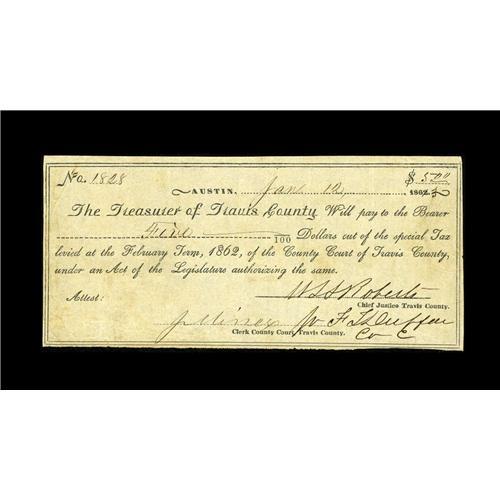 No. 1828 $ 5.00
AUSTIN, Jan 12, 1863
The Treasurer of Travis County Will pay to the Bearer
Five /100 Dollars out of the special Tax
levied at the February Term, 1862, of the County Court of Travis County,
under an Act of the Legislature authorizing the same.
Attest: Roberts
Chief Justice Travis County.
Clerk County Court Travis County.